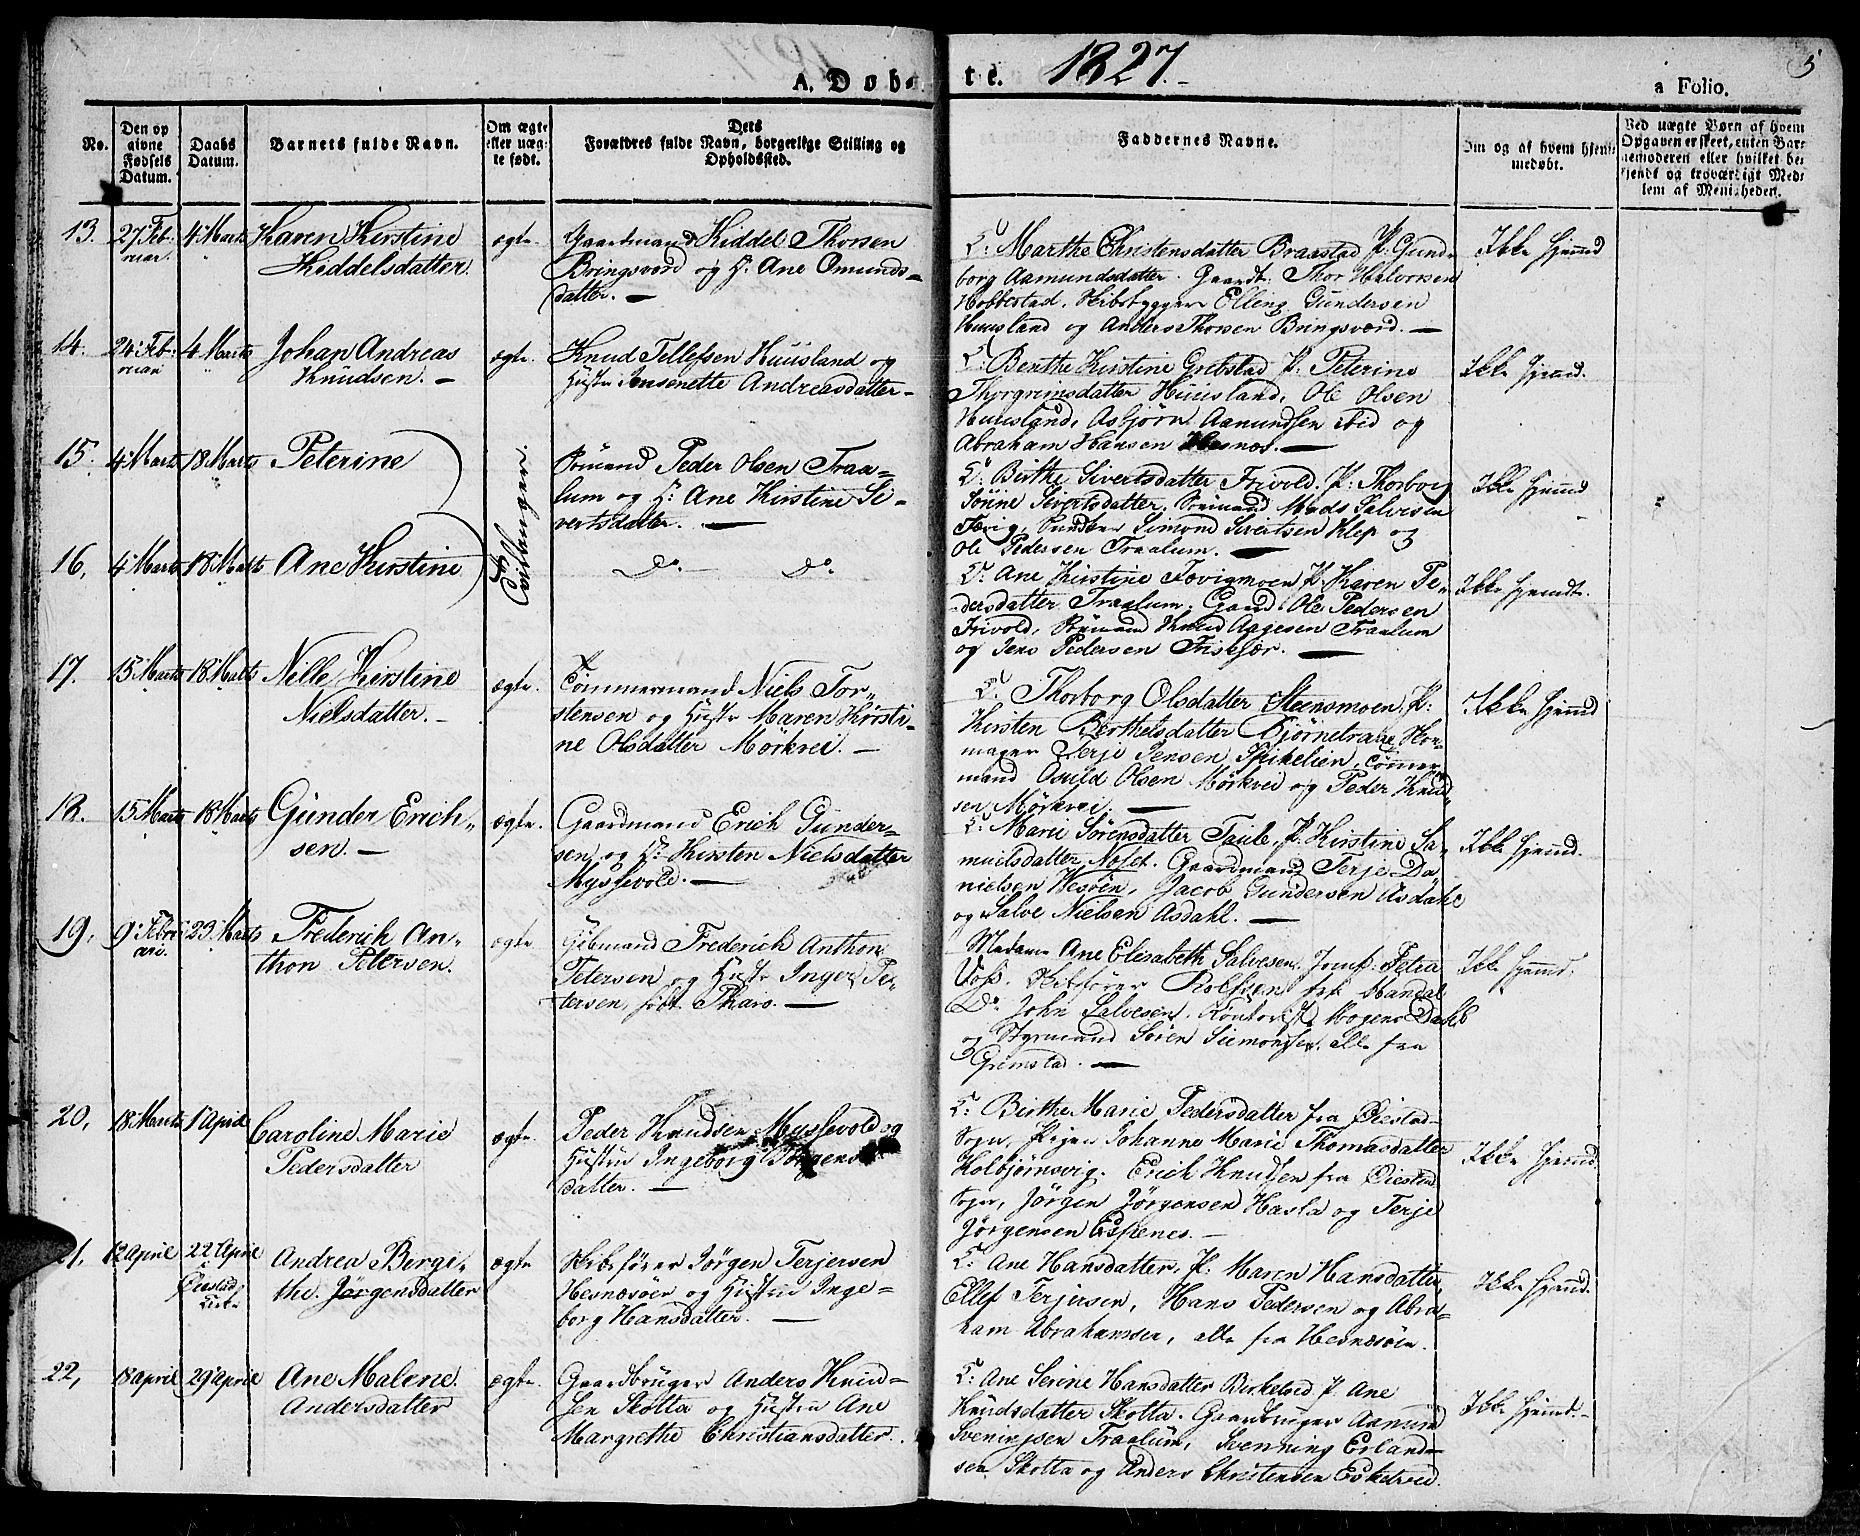 A. Døbte. 1827. 5
a Folio.
No.
Den op
givne
Fødsels
Datum.
Daabs
Datum.
Barnets fulde Navn.
Om ægte
eller uæg-
te født.
Dets
Forældres fulde Navn, borgerlige Stilling og
Opholdssted.
Faddernes Navne.
Om og af hvem hjem-
medøbt.
Ved uægte Børn af hvem
Opgaven er skeet, enten Bar-
nemoderen eller hvilket be-
kjendt og troværdigt Med-
lem af Menigheden.
13. 27 Feb: 4 Marts Karen Kirstine ægte. Gaardmand Kiddel Thorsen
ruar. Kiddelsdatter. Bringsvord og H: Ane Omunds-
datter. —
Marthe Christensdatter Braastad P. Gund-
borg Aamundsdatter. Gaardt: Thor Halvorsen
Hobbestad, Skibsbygger Elling Gundersen
Huusland og Anders Thorsen Bringsverd. —
Ikke hjemmd
14. 24 Feb: 4 Marts Johan Andreas ægte. Knud Tellefsen Huusland og
ruar Knudsen. — Hustr Jensenette Andreasdatter -
Benthe Kirstine Grebstad P: Peterine
Thorgrimsdatter Huusland, Ole Olsen
Huusland, Asbjørn Aamundsen ibid og
Abraham Hansen Hesnæs. —
Ikke hjemmd.
15. 4 Marts 18 Marts Peterine
Tvillinger.
Sømand Peder Olsen Traa-
lum og H: Ane Kirstine Si-
vertsdatter. —
Birthe Sivertsdatter Frivold. P: Thorborg
Sørine Sivertsdatter. Sømand Mads Salvesen
Fævig, Simond Sivertsen Klep og
Ole Pedersen Traalum. —
Ikke hjemmd
16, 4 Marts 18 Marts Ane Kirstine Do. — Do.
Ane Kirstine Fævigmoen P. Karen Pe-
dersdatter Traalum. Gaard: Ole Pedersen
Frivold, Sømand Knud Aagesen Traalum
og Jens Pedersen Friskjær. —
Ikke hjemmdt.
17. 15 Marts 18 Marts Nille Kirstine ægte. Tømmermand Niels Tor-
Nielsdatter. — stensen og Hustr Maren Kirsti-
ne Olsdatter Mørkvei. —
Thorborg Olsdatter Steensmoen, P:
Kirsten Berthelsdatter Bjørnetraae, Skor-
mager Terje Jensen Spikelien, Tømmer-
mand Osuld Olsen Mørkvei og Peder Knud-
sen Mørkvei. —
Ikke hjemmd
18. 15 Marts 18 Marts Gunder Erich- ægte. Gaardmand Erich Gunder-
sen. — sen og H: Kirsten Nielsdatter
Myssevold. —
Marie Sørensdatter Taule, P. Kirstine Sa-
muelsdatter Gaardmand Terje Da-
nielsen Jacob Gundersen Asdahl
og Salve Nielsen Asdahl. —
Ikke hjemmd.
19, 9 Febru 23 Marts Frederich An- ægte Frederich Anthon
ari. thon Petersen. Petersen og Hustr Inger Pe-
tersen, født Tharo. —
Madam Ane Elisabeth Salvesen. Jomf: Petra
Voss. Skibsfører Rolfsen fra Mandal
Do John Salvesen. Kontorist Mogens Dahl
og Styrmand Søren Siemonsen. alle fra
Grimstad. —
Ikke hjemmd.
20, 18 Marts 1 April Caroline Marie ægte. Peder Knudsen Myssevold og
Pedersdatter Hustru Ingeborg Jørgens
datter. —
Birthe Marie Pedersdatter fra Øiestad
Sogn, Pigen Johanne Marie Thomasdatter
Kolbjørnsvig. Erich Knudsen fra Øiestad
Sogn, Jørgen Jørgensen Hasla og Terje
Jørgensen Espenes. —
Ikke hjemmd.
21. 12 April 22 April Andrea Bergi- ægte Skibsfører Jørgen Terjersen
Øiestad the Jørgensdatter Hesnæsøen og Hustru Inge-
Kirke borg Hansdatter. —
Ane Hansdatter, P: Maren Hansdatter,
Ellef Terjersen, Hans Pedersen og Abra-
ham Abrahamsen, alle fra Hesnæsøen.
Ikke hjemmd.
22, 18 April 29 April Ane Malene ægte. Gaardbruger Anders Knud-
Andersdatter sen Skotta og Hustru Ane
Margrethe Christiansdatter.
Ane Serine Hansdatter Birketved P. Ane
Knudsdatter Skotta. Gaardbruger Aamund
Svenningsen Traalum, Svenning Erland-
sen Skotta og Anders Christensen Esketved.
Ikke hjemmd. -